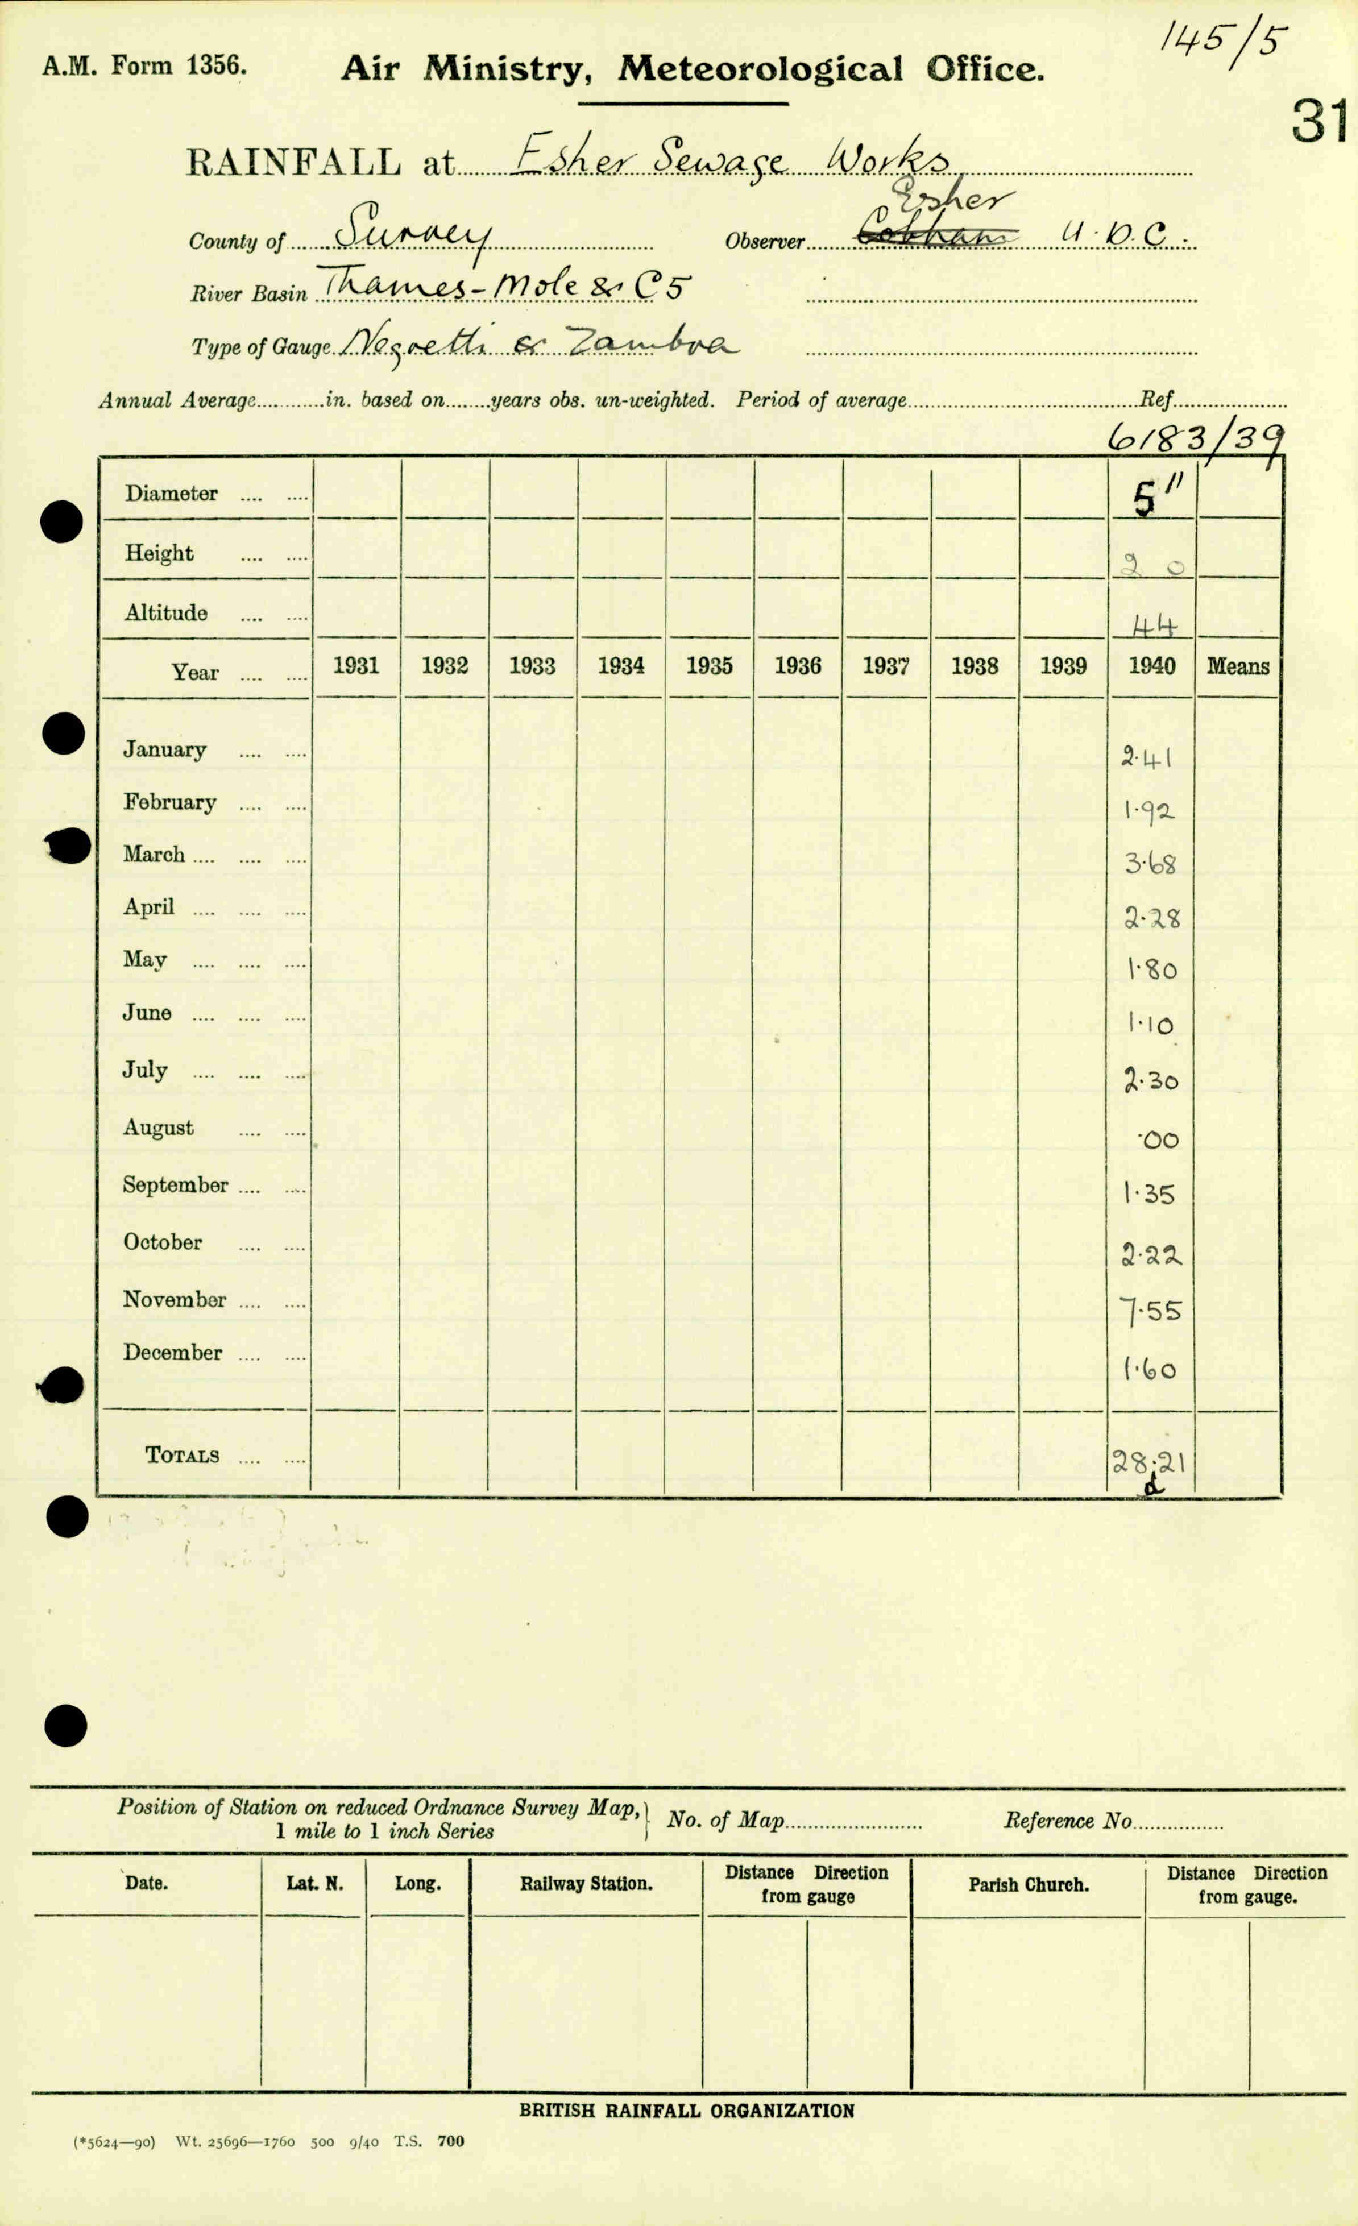 145/5
A.M. Form 1356. Air Ministry, Meteorological Office.
31
RAINFALL at Esher Sewage Works
Esher
County of Surrey Observer Cobham U.D.C.
River Basin Thames-Mole & C5
Type of Gauge Negretti & Zambra
Annual Average...........in. based on.......years obs. un-weighted. Period of average.......... Ref..........
6183/39
Diameter .... .... 5"
Height .... .... 2 0
Altitude .... .... 44
Year .... .... 1931 1932 1933 1934 1935 1936 1937 1938 1939 1940 Means
January .... .... 2.41
February .... .... 1.92
March .... .... .... 3.68
April .... .... .... 2.28
May .... .... .... 1.80
June .... .... .... 1.10
July .... .... .... 2.30
August .... .... .00
September .... .... 1.35
October .... .... 2.22
November .... .... 7.55
December .... .... 1.60
TOTALS .... .... 28.21
d
Position of Station on reduced Ordnance Survey Map, } No. of Map.......... Reference No..........
1 mile to 1 inch Series
Date. Lat. N. Long. Railway Station. Distance Direction from gauge Parish Church. Distance Direction from gauge.
BRITISH RAINFALL ORGANIZATION
(*5624—90) Wt. 25696—1760 500 9/40 T.S. 700